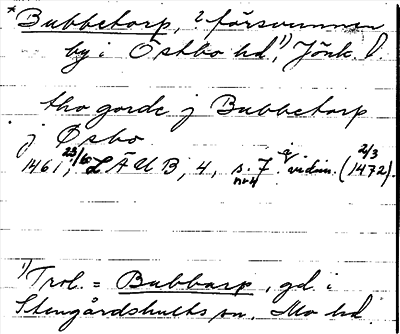 *Bubbetorp, ? försvunnen
by i Östbo hd¹⁾, Jönk. l.
tho garde j Bubbetorp
j Øsbo
1461, 23/10 LÄUB, 4, s. 7 i vidim. (2/3 1472).
nr 4
¹⁾Trol. = Bubbarp, gd. i
Stengårdshults sn, Mo hd